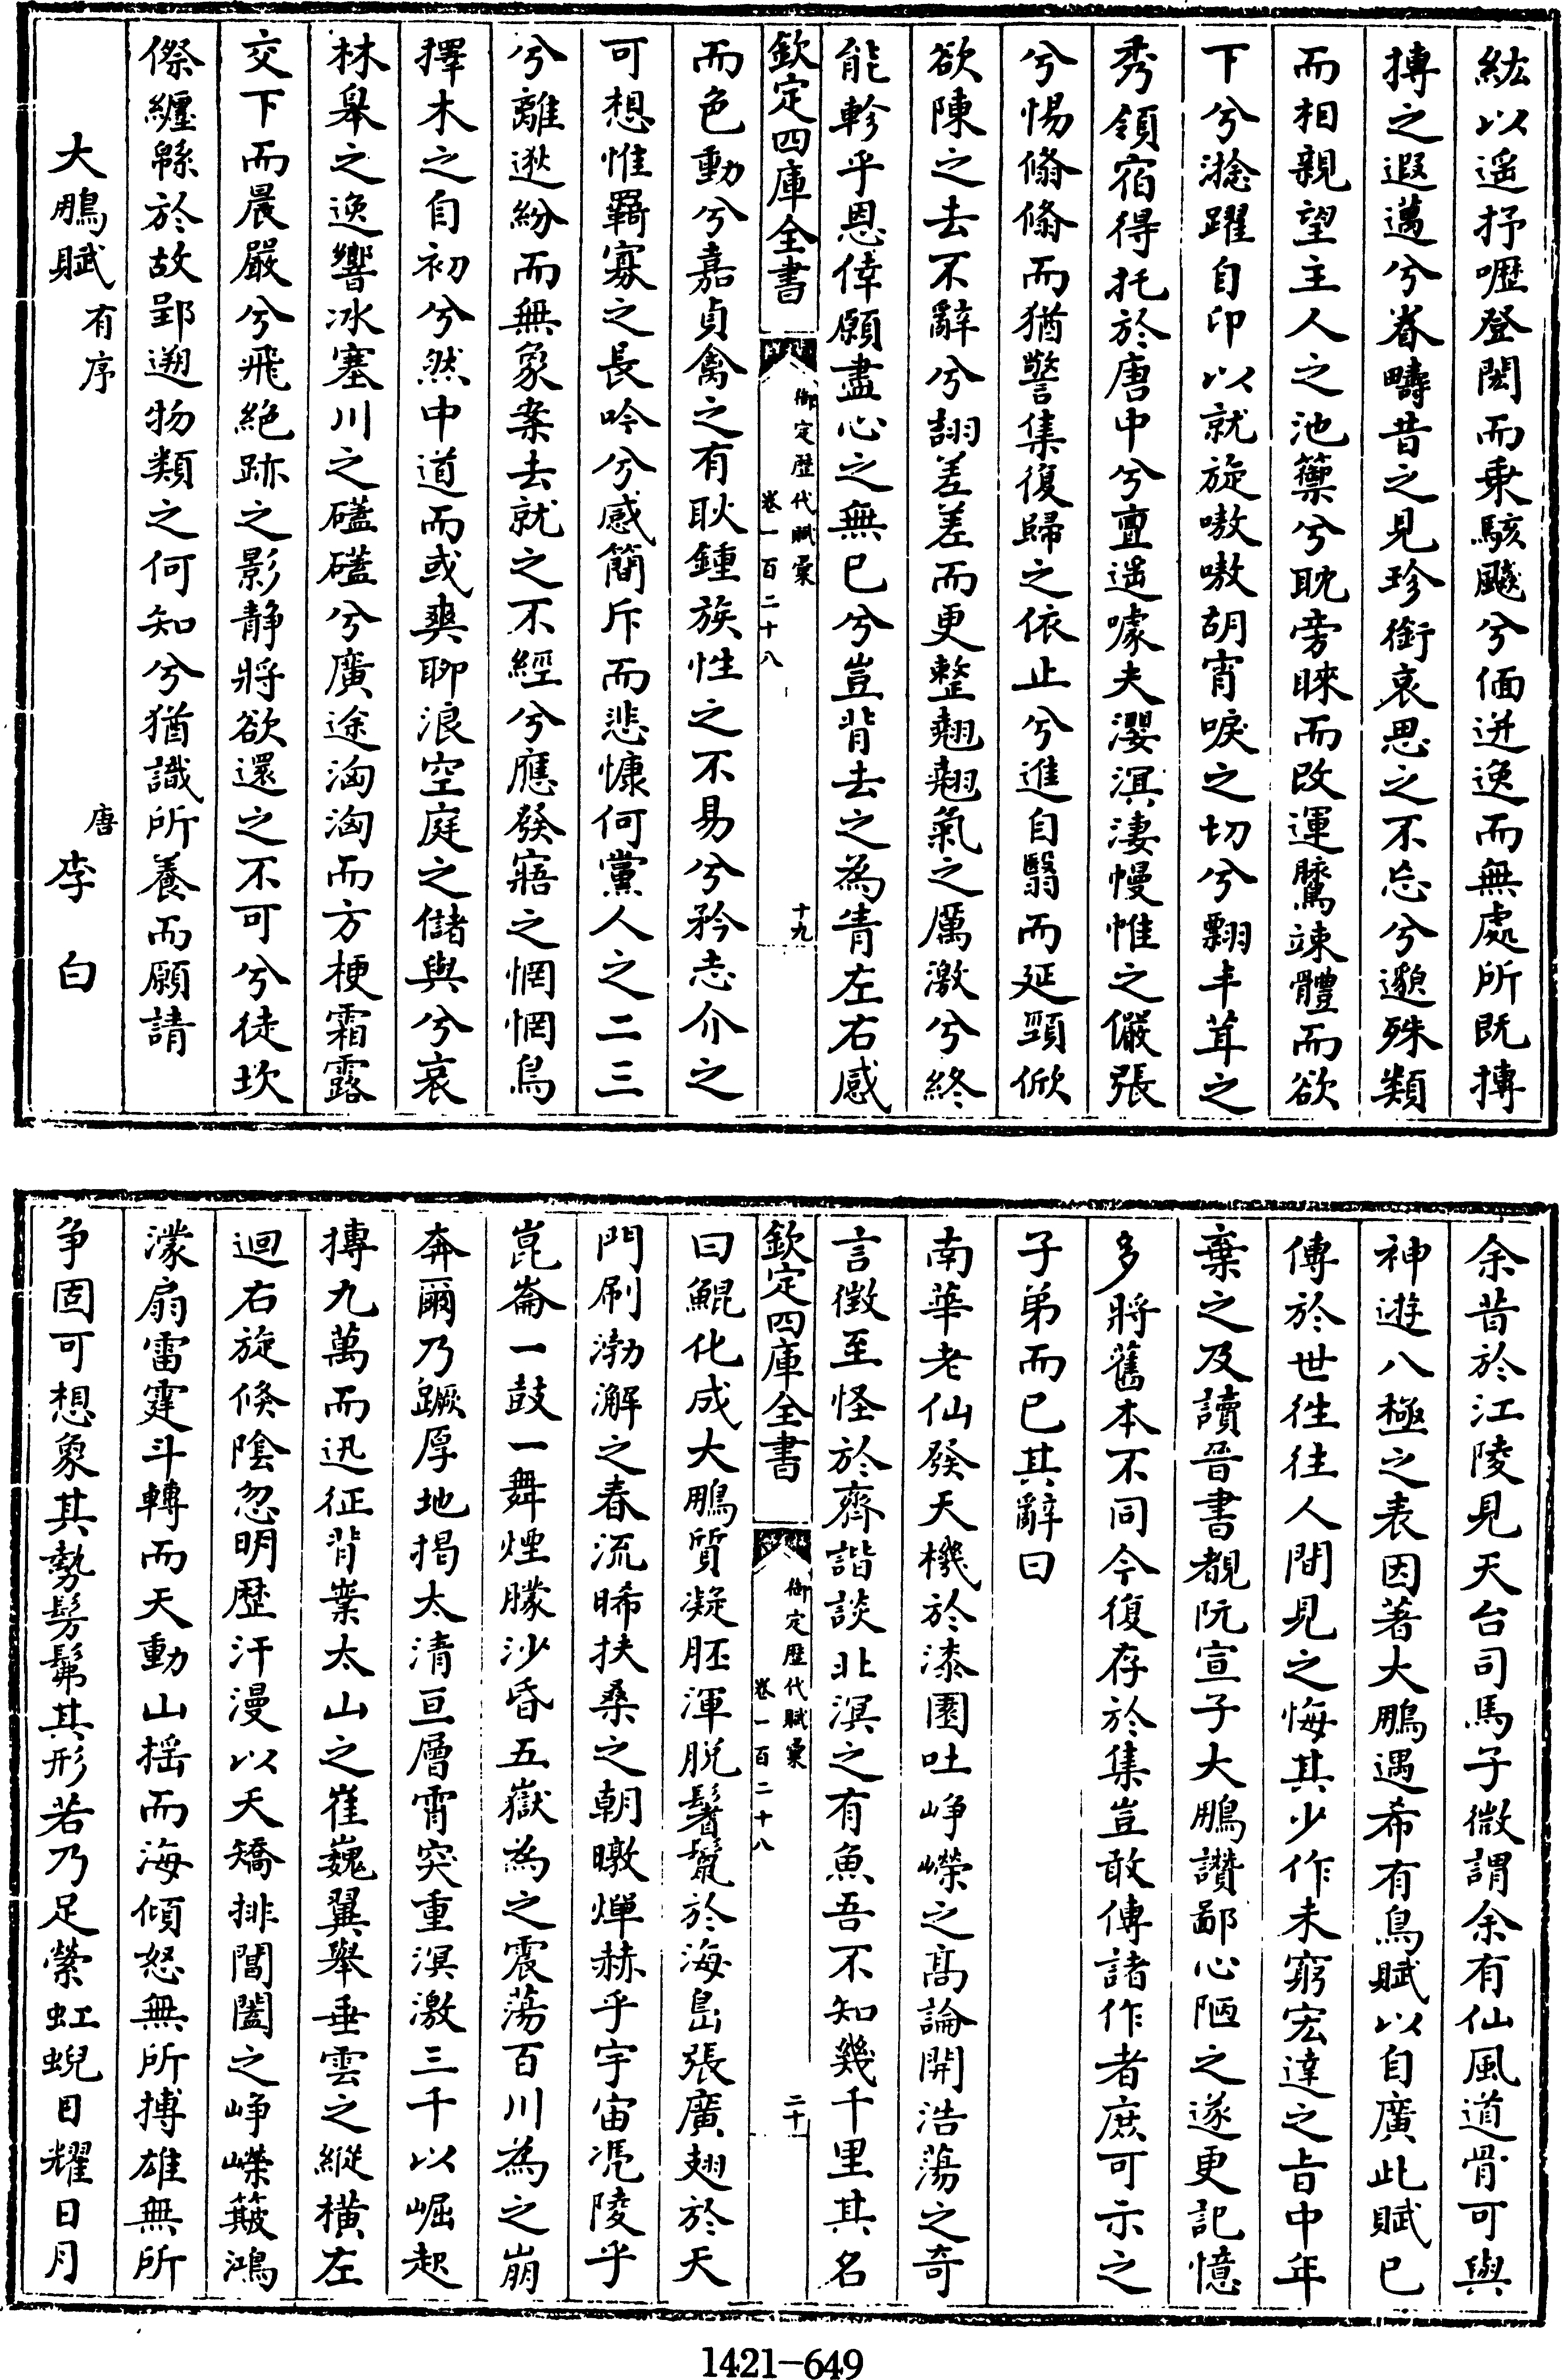 紘以遥抒嚦登閎而乗駭飈兮偭迸逸而無處所既摶
摶之遐邁兮眷疇昔之見珍銜哀思之不忘兮邈殊類
而相親望主人之池籞兮耽旁睞而改運騰竦體而欲
下兮淰躍自印以就旋嗷嗷胡宵唳之切兮翾丰茸之
秀領宿得托於唐中兮亶遥噱夫瀴溟淒慢惟之儼張
兮惕翛翛而猶警集復歸之依止兮進自翳而延頸倐
欲陳之去不辭兮詡差差而更整翹翹氣之厲激兮終
能軫乎恩倖願盡心之無已兮豈背去之為眚左右感
欽定四庫全書
御定歴代賦彚
卷一百二十八
十九
而色動兮嘉貞禽之有耿鍾族性之不易兮矜志介之
可想惟羇寡之長吟兮感簡斥而悲慷何黨人之二三
兮離逖紛而無象案去就之不經兮應發寤之惘惘烏
擇木之自初兮然中道而或爽聊浪空庭之儲與兮哀
林皋之逸響冰塞川之礚礚兮廣途洶洶而方梗霜露
交下而晨嚴兮飛絶跡之影静將欲還之不可兮徒坎
傺纏緜於故郢遡物類之何知兮猶識所養而願請
大鵬賦 有序
唐 李白
余昔於江陵見天台司馬子微謂余有仙風道骨可與
神遊八極之表因著大鵬遇希有鳥賦以自廣此賦已
傳於世徃往人間見之悔其少作未窮宏達之旨中年
棄之及讀晉書覩阮宣子大鵬讚鄙心陋之遂更記憶
多將舊本不同今復存於集豈敢傳諸作者庶可示之
子弟而已其辭曰
南華老仙發天機於漆園吐崢嶸之高論開浩蕩之奇
言徵至怪於齊諧談北溟之有魚吾不知幾千里其名
欽定四庫全書
御定歴代賦彚
卷一百二十八
二十
曰鯤化成大鵬質凝胚渾脱鬐鬣於海島張廣翅於天
門刷渤澥之春流晞扶桑之朝暾燀赫乎宇宙憑陵乎
崑崙一鼓一舞煙朦沙昏五嶽為之震蕩百川為之崩
奔爾乃蹶厚地揭太清亘層霄突重溟激三千以崛起
摶九萬而迅征背嶪太山之崔巍翼舉垂雲之縱橫左
迴右旋倏陰忽明歴汗漫以夭矯排閶闔之崢嶸簸鴻
濛扇雷霆斗轉而天動山揺而海傾怒無所搏雄無所
争固可想象其勢髣髴其形若乃足縈虹蜺目耀日月
1421—649